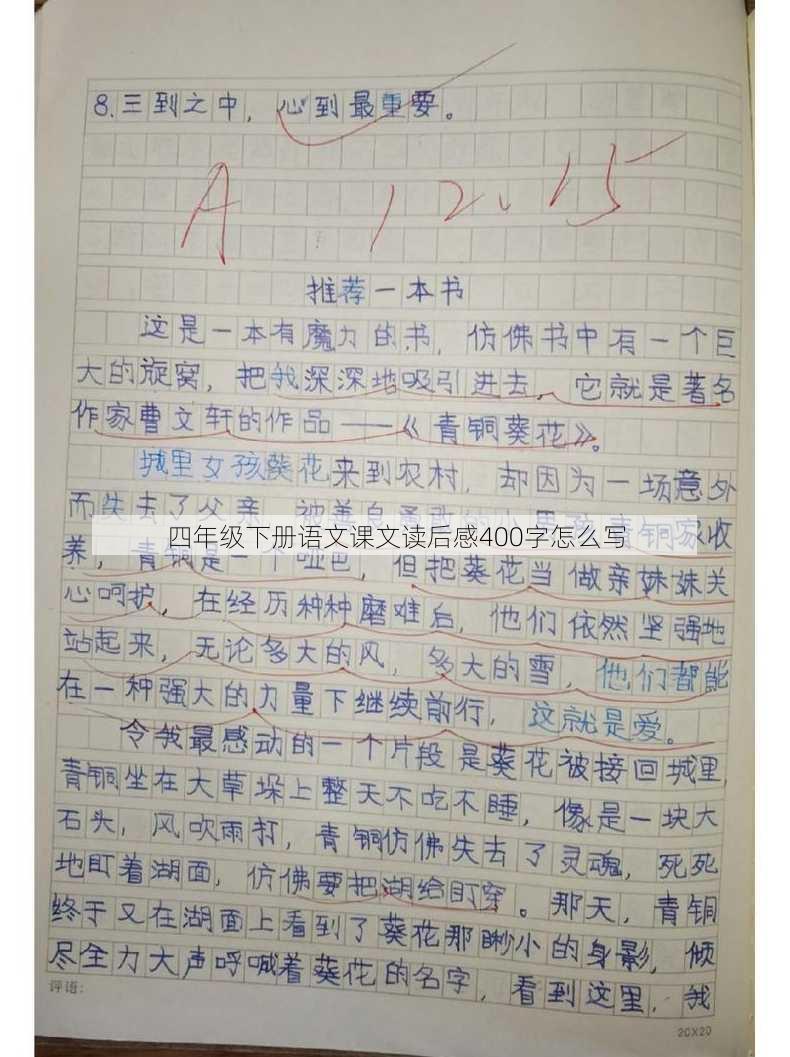 8.三到之中，心到最重要。
A 12.15
推荐一本书
这是一本有魔力的书，仿佛书中有一个巨
大的旋窝，把我深深地吸引进去，它就是著名
作家曹文轩的作品——《青铜葵花》。
城里女孩葵花来到农村，却因为一场意外
而失去了父亲，被善良勇敢的小男孩青铜家收
四年级下册语文课文读后感400字怎么写
养，青铜是一个哑巴，但把葵花当做亲妹妹关
心呵护，在经历种种磨难后，他们依然坚强地
站起来，无论多大的风，多大的雪，他们都能
在一种强大的力量下继续前行，这就是爱。
令我最感动的一个片段是葵花被接回城里，
青铜坐在大草垛上整天不吃不睡，像是一块大
石头，风吹雨打，青铜仿佛失去了灵魂，死死
地盯着湖面，仿佛要把湖给盯穿。那天，青铜
终于又在湖面上看到了葵花那眇小的身影，倾
尽全力大声呼喊着葵花的名字，看到这里，我
评语：
20X20